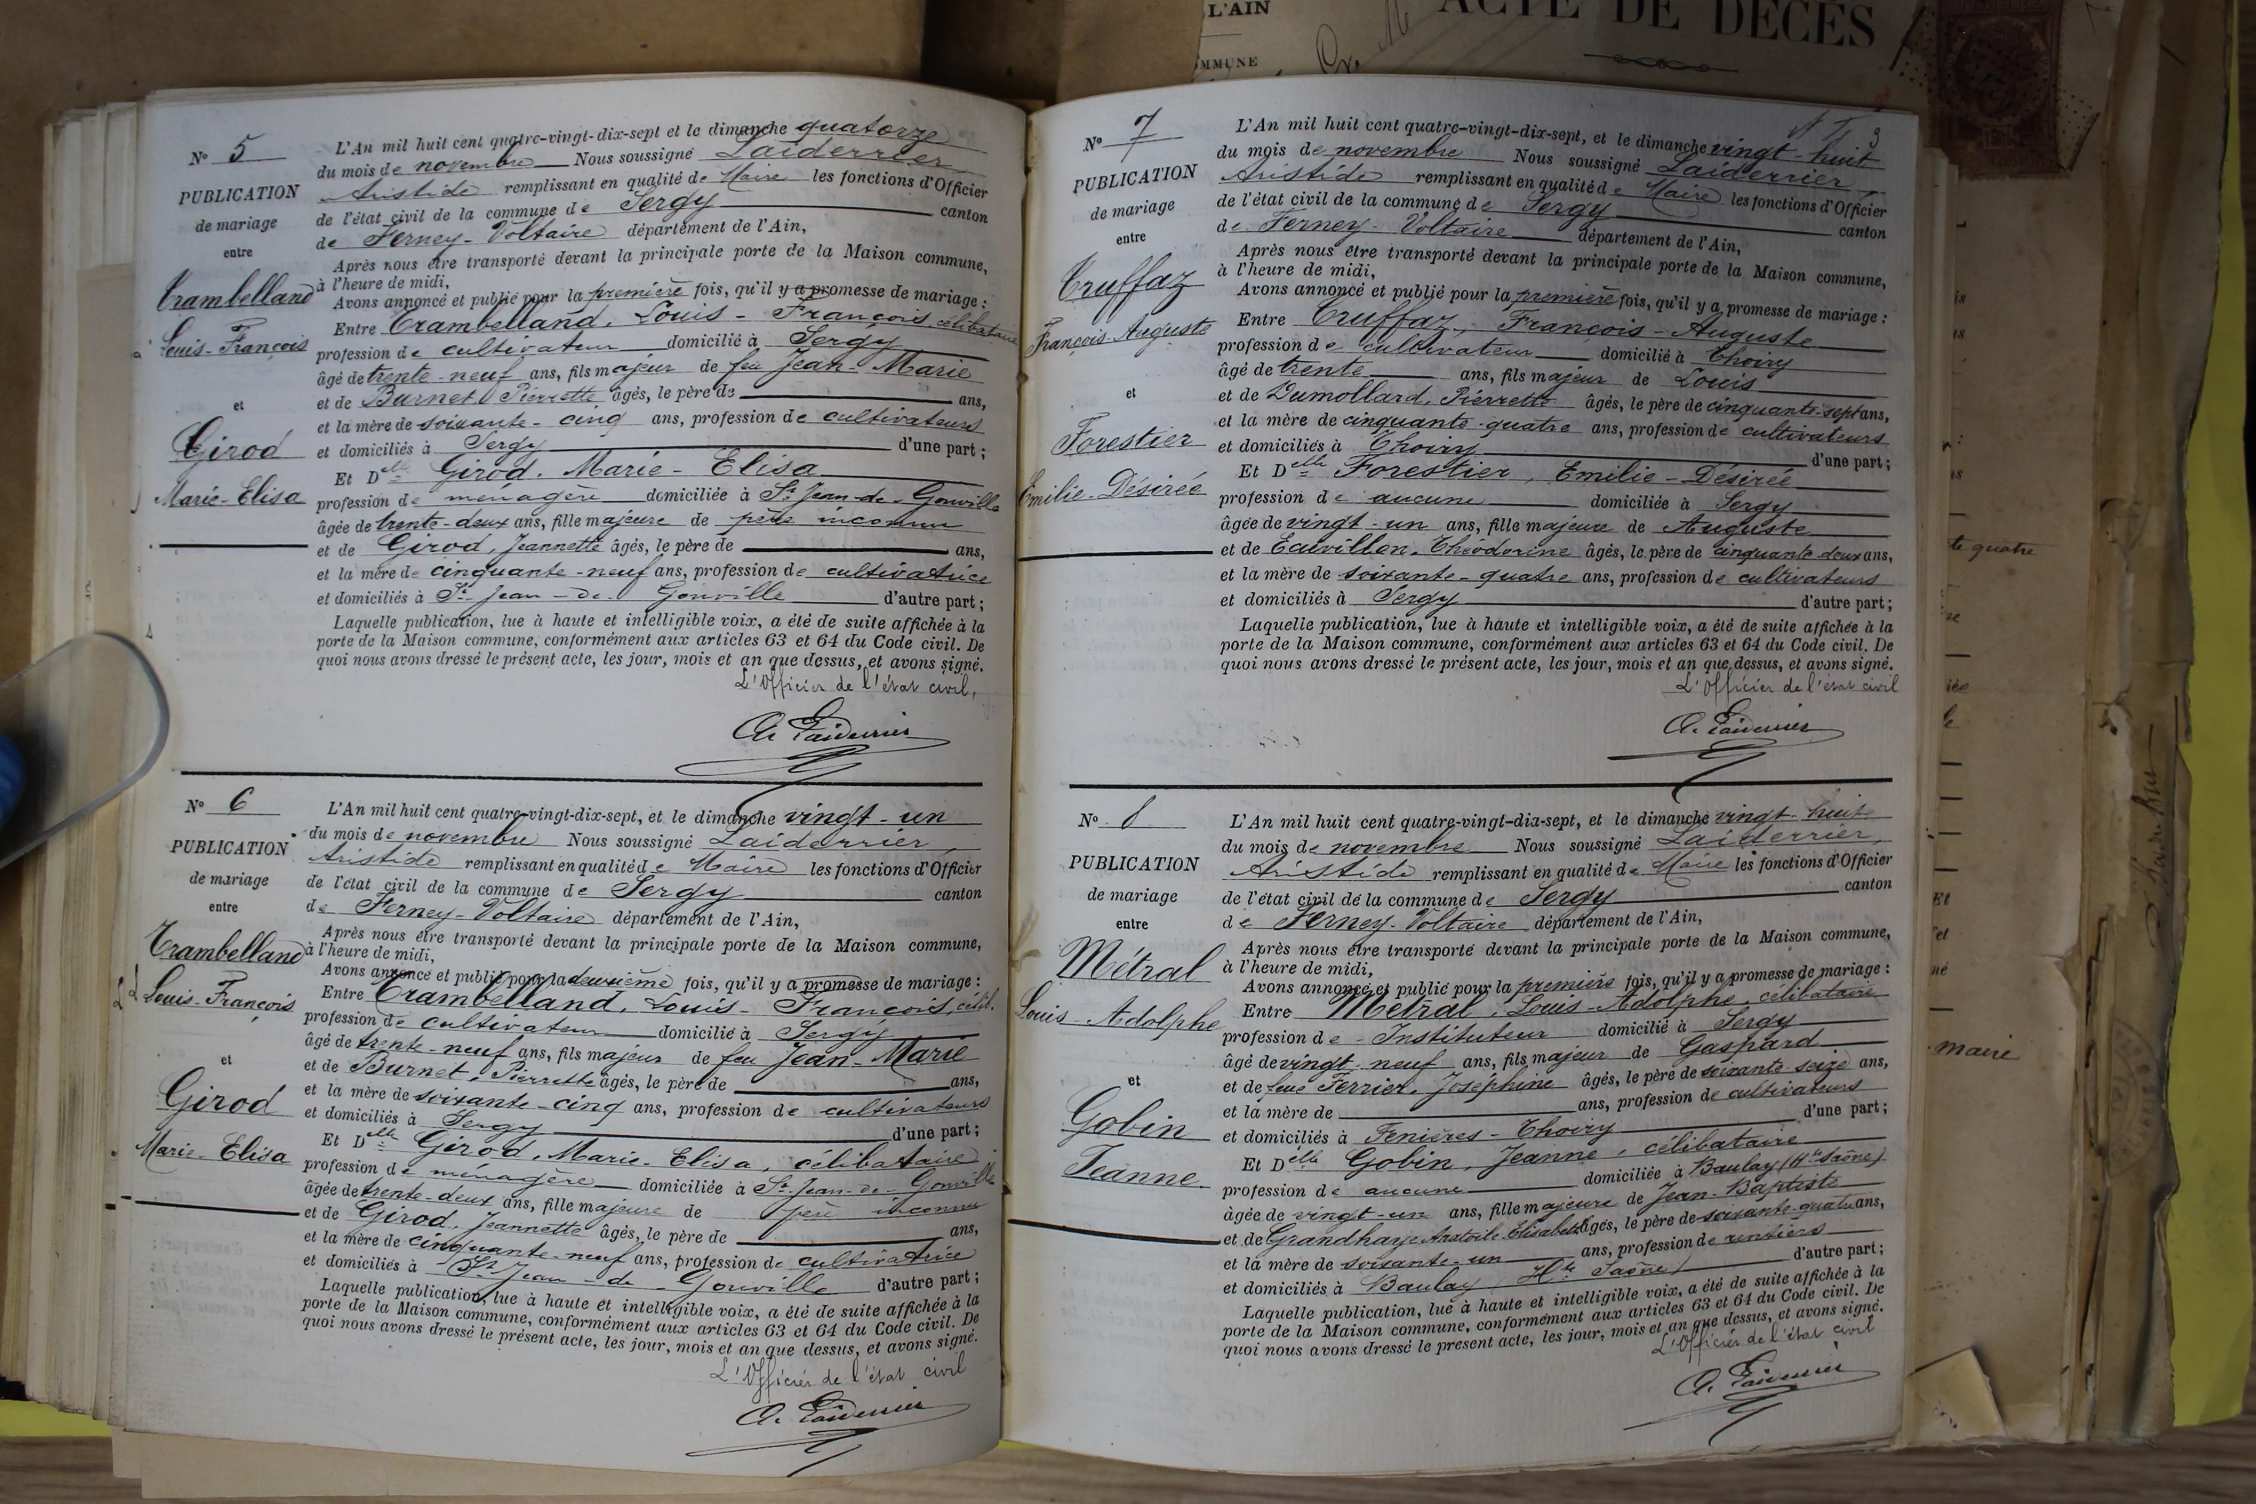 L'AIN
COMMUNE
ACTE DE DÉCÈS
N° 5
PUBLICATION
de mariage
entre
Trambelland
Louis-François
et
Girod
Marie-Elisa
L'An mil huit cent quatre-vingt-dix-sept et le dimanche quatorze
du mois de novembre Nous soussigné Laiderrier
Aristide remplissant en qualité de Maire les fonctions d'Officier
de l'état civil de la commune de Sergy canton
de Ferney-Voltaire département de l'Ain,
Après nous être transporté devant la principale porte de la Maison commune,
à l'heure de midi,
Avons annoncé et publié pour la première fois, qu'il y a promesse de mariage :
Entre Trambelland, Louis-François, célibataire
profession de cultivateur domicilié à Sergy
âgé de trente-neuf ans, fils majeur de feu Jean-Marie
et de Burnet Pierrette âgés, le père de ans,
et la mère de soixante-cinq ans, profession de cultivateurs
et domiciliés à Sergy d'une part ;
Et Delle Girod, Marie-Elisa
profession de ménagère domiciliée à St Jean-de-Gonville
âgée de trente-deux ans, fille majeure de père inconnu
et de Girod, Jeannette âgés, le père de ans,
et la mère de cinquante-neuf ans, profession de cultivatrice
et domiciliés à St Jean-de-Gonville d'autre part ;
Laquelle publication, lue à haute et intelligible voix, a été de suite affichée à la
porte de la Maison commune, conformément aux articles 63 et 64 du Code civil. De
quoi nous avons dressé le présent acte, les jour, mois et an que dessus, et avons signé.
L'Officier de l'état civil,
A. Laiderrier
N° 6
PUBLICATION
de mariage
entre
Trambelland
Louis-François
et
Girod
Marie-Elisa
L'An mil huit cent quatre-vingt-dix-sept, et le dimanche vingt-un
du mois de novembre Nous soussigné Laiderrier,
Aristide remplissant en qualité de Maire les fonctions d'Officier
de l'état civil de la commune de Sergy canton
de Ferney-Voltaire département de l'Ain,
Après nous être transporté devant la principale porte de la Maison commune,
à l'heure de midi,
Avons annoncé et publié pour la deuxième fois, qu'il y a promesse de mariage :
Entre Trambelland, Louis-François, célib.
profession de cultivateur domicilié à Sergy
âgé de trente-neuf ans, fils majeur de feu Jean-Marie
et de Burnet, Pierrette âgés, le père de ans,
et la mère de soixante-cinq ans, profession de cultivateurs
et domiciliés à Sergy d'une part ;
Et Delle Girod, Marie-Elisa, célibataire
profession de ménagère domiciliée à St-Jean-de-Gonville
âgée de trente-deux ans, fille majeure de père inconnu
et de Girod, Jeannette âgés, le père de ans,
et la mère de cinquante-neuf ans, profession de cultivatrice
et domiciliés à St Jean-de-Gonville d'autre part ;
Laquelle publication, lue à haute et intelligible voix, a été de suite affichée à la
porte de la Maison commune, conformément aux articles 63 et 64 du Code civil. De
quoi nous avons dressé le présent acte, les jour, mois et an que dessus, et avons signé.
L'Officier de l'état civil
A. Laiderrier
N° 7
PUBLICATION
de mariage
entre
Truffaz
François-Auguste
et
Forestier
Emilie-Désirée
L'An mil huit cent quatre-vingt-dix-sept, et le dimanche vingt-huit
du mois de novembre Nous soussigné Laiderrier,
Aristide remplissant en qualité de Maire les fonctions d'Officier
de l'état civil de la commune de Sergy canton
de Ferney-Voltaire département de l'Ain,
Après nous être transporté devant la principale porte de la Maison commune,
à l'heure de midi,
Avons annoncé et publié pour la première fois, qu'il y a promesse de mariage :
Entre Truffaz, François-Auguste
profession de cultivateur domicilié à Thoiry
âgé de trente ans, fils majeur de Louis
et de Dumollard, Pierrette âgés, le père de cinquante-sept ans,
et la mère de cinquante-quatre ans, profession de cultivateurs
et domiciliés à Thoiry d'une part ;
Et Delle Forestier, Emilie-Désirée
profession de aucune domiciliée à Sergy
âgée de vingt-un ans, fille majeure de Auguste
et de Théodorine âgés, le père de cinquante-deux ans,
et la mère de soixante-quatre ans, profession de cultivateurs
et domiciliés à Sergy d'autre part ;
Laquelle publication, lue à haute et intelligible voix, a été de suite affichée à la
porte de la Maison commune, conformément aux articles 63 et 64 du Code civil. De
quoi nous avons dressé le présent acte, les jour, mois et an que dessus, et avons signé.
L'Officier de l'état civil
A. Laiderrier
N° 8
PUBLICATION
de mariage
entre
Métral
Louis-Adolphe
et
Gobin
Jeanne
L'An mil huit cent quatre-vingt-dix-sept, et le dimanche vingt-huit
du mois de novembre Nous soussigné Laiderrier,
Aristide remplissant en qualité de Maire les fonctions d'Officier
de l'état civil de la commune de Sergy canton
de Ferney-Voltaire département de l'Ain,
Après nous être transporté devant la principale porte de la Maison commune,
à l'heure de midi,
Avons annoncé et publié pour la première fois, qu'il y a promesse de mariage :
Entre Métral, Louis-Adolphe, célibataire
profession de Instituteur domicilié à Sergy
âgé de vingt-neuf ans, fils majeur de Gaspard
et de feue Ferrier, Joséphine âgés, le père de soixante-seize ans,
et la mère de ans, profession de cultivateurs
et domiciliés à Fenières-Thoiry d'une part ;
Et Delle Gobin, Jeanne, célibataire
profession de aucune domiciliée à Baulay (Hte Saône)
âgée de vingt-un ans, fille majeure de Jean-Baptiste
et de Grandhaye Anatoile Elisabeth âgés, le père de soixante-quatre ans,
et la mère de soixante-un ans, profession de rentiers
et domiciliés à Baulay (Hte Saône) d'autre part ;
Laquelle publication, lue à haute et intelligible voix, a été de suite affichée à la
porte de la Maison commune, conformément aux articles 63 et 64 du Code civil. De
quoi nous avons dressé le présent acte, les jour, mois et an que dessus, et avons signé.
L'Officier de l'état civil
A. Laiderrier
quatre
maire